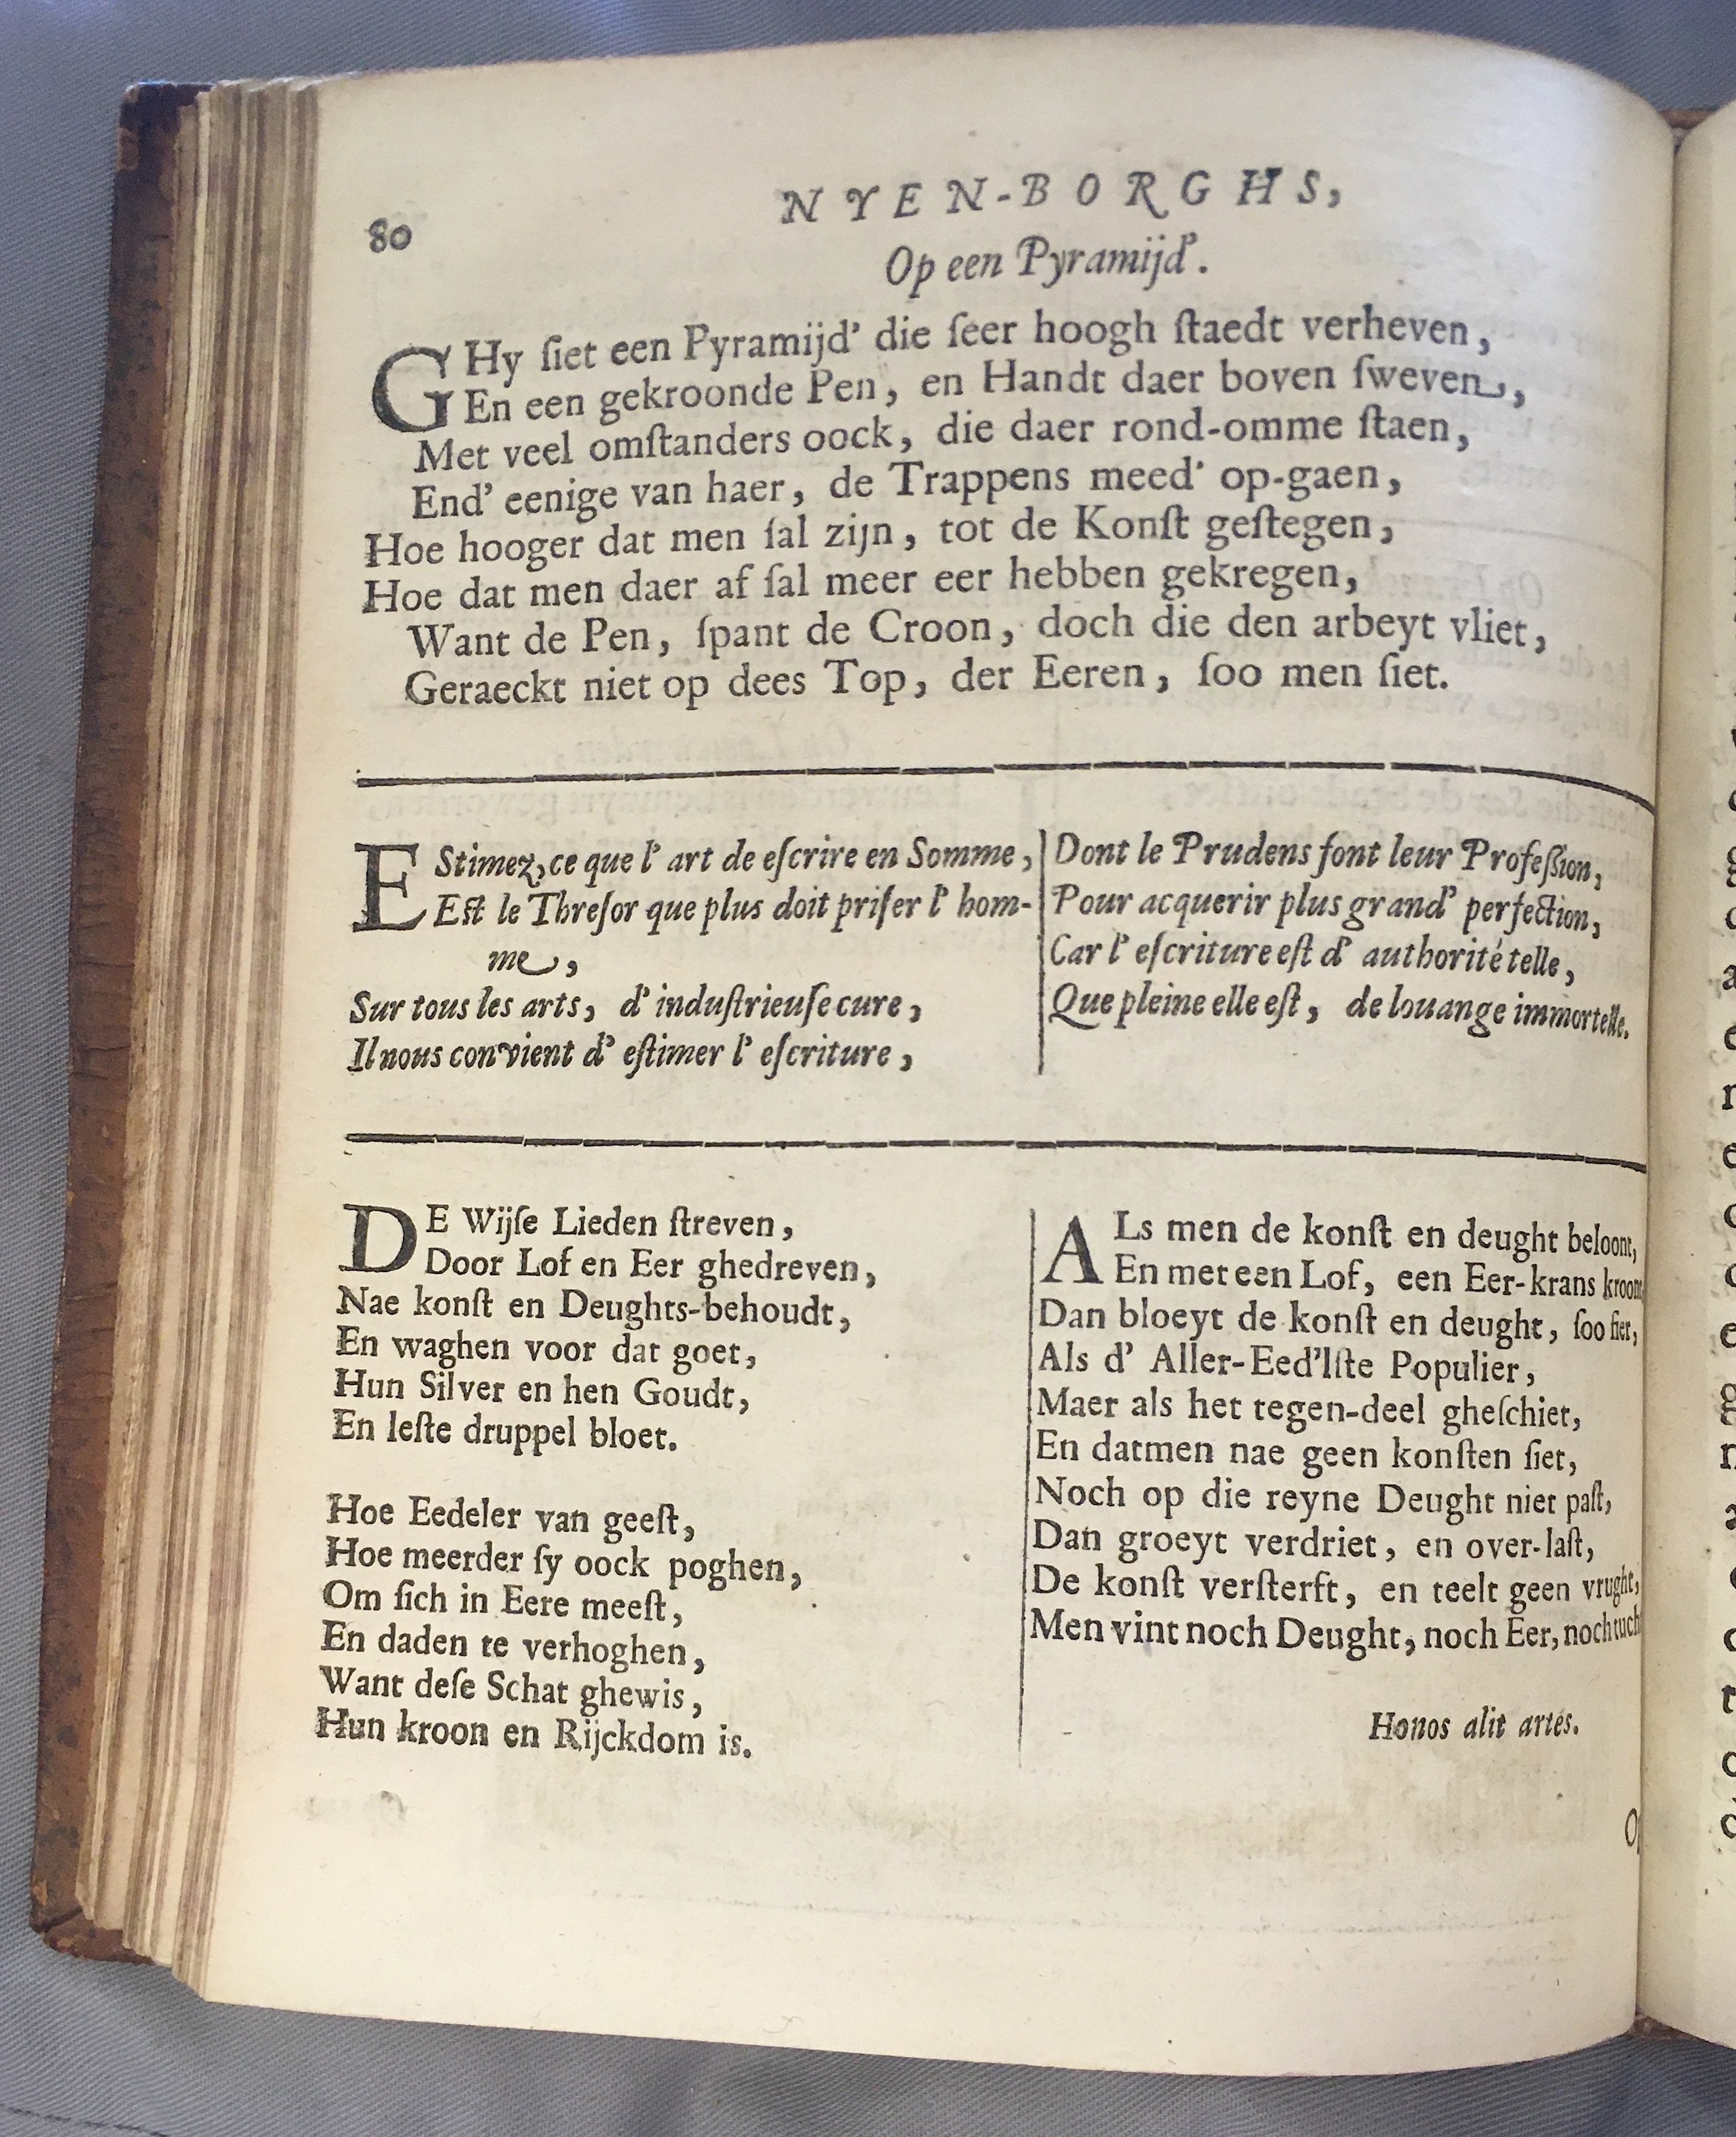 80
NYEN-BORGHS,
Op een Pyramijd'.
GHy ſiet een Pyramijd' die ſeer hoogh ſtaedt verheven,
En een gekroonde Pen, en Handt daer boven ſweven,
Met veel omſtanders oock, die daer rond-omme ſtaen,
End' eenige van haer, de Trappens meed' op-gaen,
Hoe hooger dat men ſal zijn, tot de Konſt geſtegen,
Hoe dat men daer af ſal meer eer hebben gekregen,
Want de Pen, ſpant de Croon, doch die den arbeyt vliet,
Geraeckt niet op dees Top, der Eeren, ſoo men ſiet.
EStimez, ce que l' art de eſcrire en Somme,
Eſt le Threſor que plus doit priſer l' hom-
me,
Sur tous les arts, d' induſtrieuſe cure,
Il nous convient d' eſtimer l' eſcriture,
Dont le Prudens font leur Profeſſion,
Pour acquerir plus grand' perfection,
Car l' eſcriture eſt d' authorité telle,
Que pleine elle eſt, de louange immortelle.
DE Wijſe Lieden ſtreven,
Door Lof en Eer ghedreven,
Nae konſt en Deughts-behoudt,
En waghen voor dat goet,
Hun Silver en hen Goudt,
En leſte druppel bloet.
Hoe Eedeler van geeſt,
Hoe meerder ſy oock poghen,
Om ſich in Eere meeſt,
En daden te verhoghen,
Want deſe Schat ghewis,
Hun kroon en Rijckdom is.
ALs men de konſt en deught beloont,
En met een Lof, een Eer-krans
Dan bloeyt de konſt en deught, ſoo fier,
Als d' Aller-Eed'lſte Populier,
Maer als het tegen-deel gheſchiet,
En datmen nae geen konſten ſiet,
Noch op die reyne Deught niet paſt,
Dan groeyt verdriet, en over-laſt,
De konſt verſterft, en teelt geen vrught,
Men vint noch Deught, noch Eer, noch
Honos alit artes.